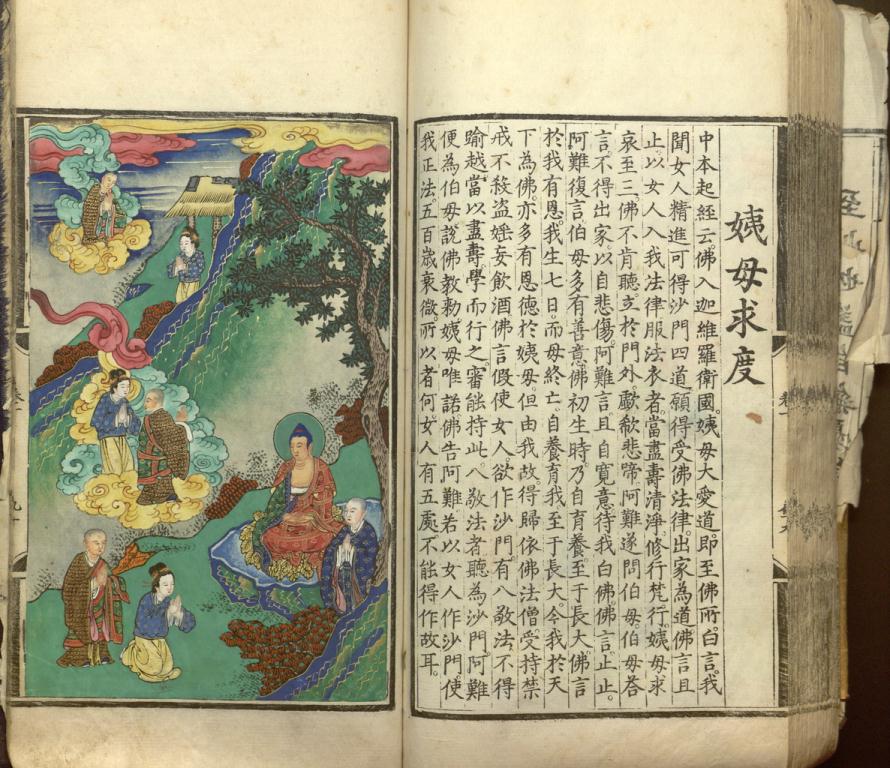 姨母求度
中本起經云。佛入迦維羅衛國。姨母大愛道。即至佛所。白言。我
聞女人精進可得沙門四道。願得受佛法律。出家為道。佛言且
止。以女人入我法律。服法衣者。當盡壽清淨。修行梵行。姨母求
哀至三。佛不肯聽。立於門外。歔欷悲啼。阿難遂問伯母。伯母答
言。不得出家。以自悲傷。阿難言。且自寬意。待我白佛。佛言止止。
阿難復言。伯母多有善意。佛初生時。乃自育養至于長大。佛言
於我有恩。我生七日。而母終亡。自養育我至于長大。今我於天
下為佛。亦多有恩德於姨母。但由我故。得歸依佛法僧。受持禁
戒。不殺盜婬妄飲酒。佛言假使女人。欲作沙門。有八敬法。不得
踰越。當以盡壽學而行之。審能持此。八敬法者。聽為沙門。阿難
便為伯母說佛教勅。姨母唯諾。佛告阿難。若以女人作沙門。使
我正法。五百歲衰微。所以者何。女人有五處。不能得作故耳。